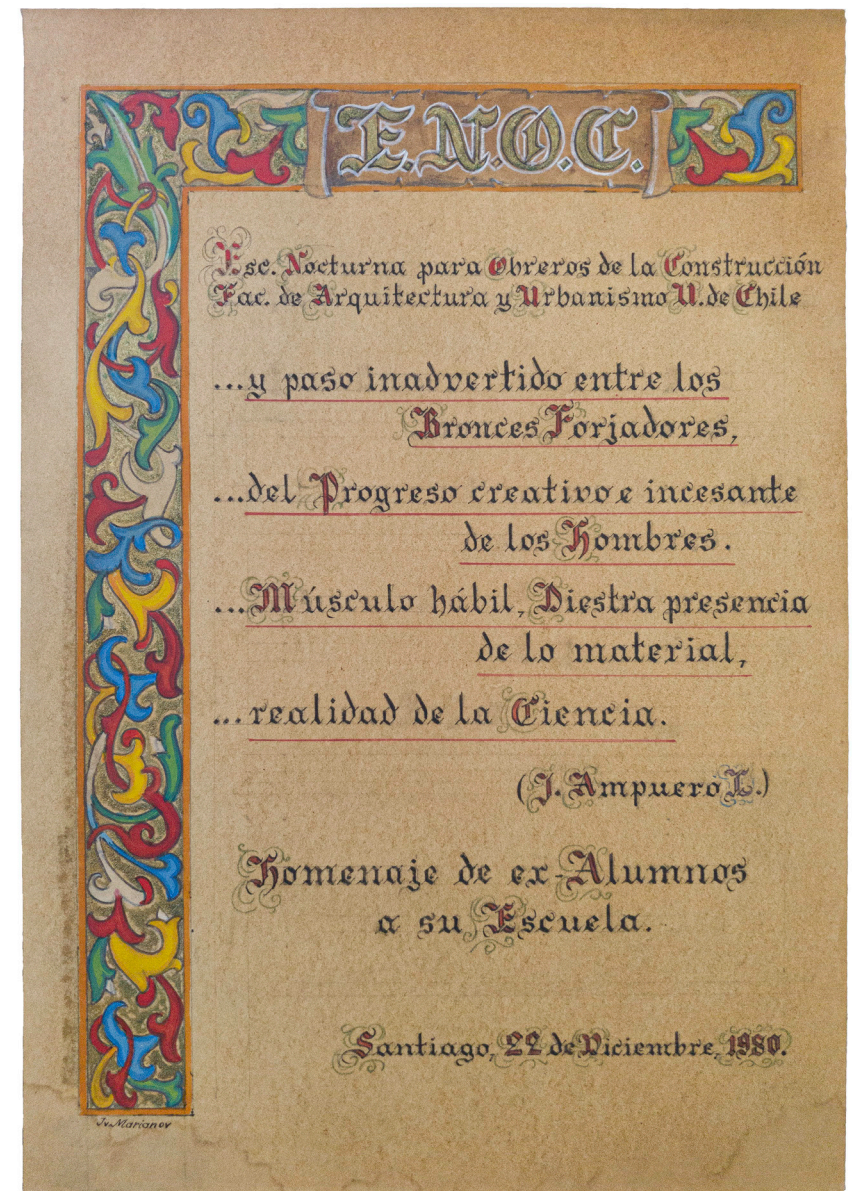 E.N.O.C.
Esc. Nocturna para Obreros de la Construcción
Fac. de Arquitectura y Urbanismo U. de Chile
...y paso inadvertido entre los
Bronces Forjadores,
...del Progreso creativo e incesante
de los Hombres.
...Músculo hábil, Diestra presencia
de lo material,
...realidad de la Ciencia.
(J. Ampuero L.)
Homenaje de ex-Alumnos
a su Escuela.
Santiago, 22 de Diciembre, 1980.
Iv. Marianov